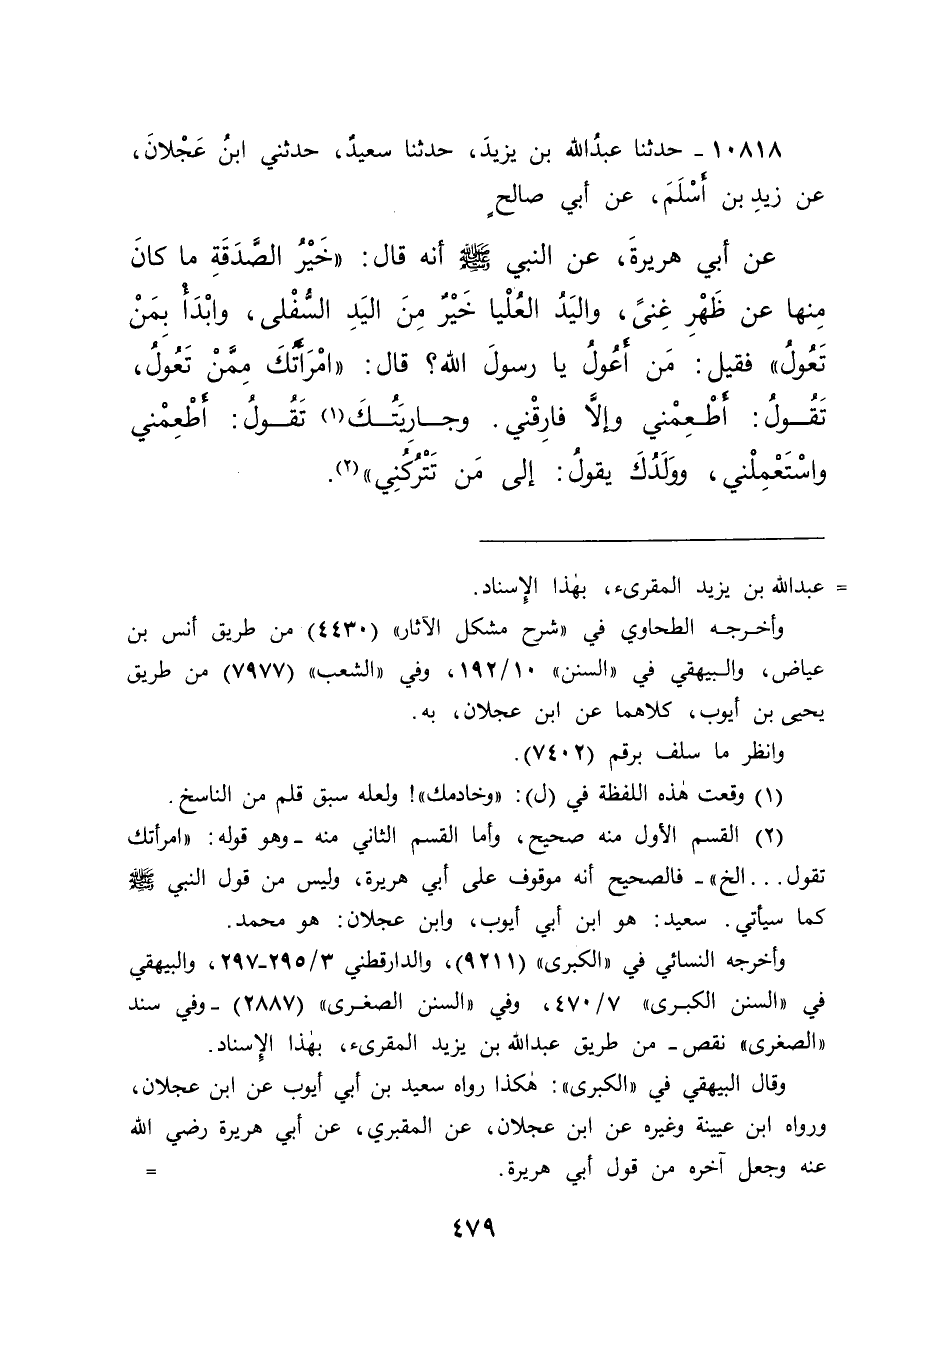 ١٠٨١٨ - حدثنا عبدُالله بن يزيدَ، حدثنا سعيدٌ، حدثني ابنُ عَجْلانَ،
عن زيدِ بن أَسْلَمَ، عن أبي صالحٍ
عن أبي هريرةَ، عن النبي ﷺ أنه قال: «خَيْرُ الصَّدَقَةِ ما كانَ
مِنها عن ظَهْرِ غِنىً، واليَدُ العُلْيا خَيْرٌ مِنَ اليَدِ السُّفْلى، وابْدَأْ بِمَنْ
تَعُولُ» فقيل: مَن أَعُولُ يا رسولَ الله؟ قال: «امْرَأَتُكَ مِمَّنْ تَعُولُ،
تَقُولُ: أَطْعِمْني وإلاَّ فارِقْني. وجارِيَتُكَ(١) تَقُولُ: أَطْعِمْني
واسْتَعْمِلْني، ووَلَدُكَ يقولُ: إلى مَن تَتْرُكُنِي»(٢).
= عبدالله بن يزيد المقرىء، بهٰذا الإسناد.
وأخرجه الطحاوي في «شرح مشكل الآثار» (٤٤٣٠) من طريق أنس بن
عياض، والبيهقي في «السنن» ١٩٢/١٠، وفي «الشعب» (٧٩٧٧) من طريق
يحيى بن أيوب، كلاهما عن ابن عجلان، به.
وانظر ما سلف برقم (٧٤٠٢).
(١) وقعت هٰذه اللفظة في (ل): «وخادمك»! ولعله سبق قلم من الناسخ.
(٢) القسم الأول منه صحيح، وأما القسم الثاني منه -وهو قوله: «امرأتك
تقول...الخ»- فالصحيح أنه موقوف على أبي هريرة، وليس من قول النبي ﷺ
كما سيأتي. سعيد: هو ابن أبي أيوب، وابن عجلان: هو محمد.
وأخرجه النسائي في «الكبرى» (٩٢١١)، والدارقطني ٢٩٥/٣-٢٩٧، والبيهقي
في «السنن الكبرى» ٤٧٠/٧، وفي «السنن الصغرى» (٢٨٨٧) -وفي سند
«الصغرى» نقص- من طريق عبدالله بن يزيد المقرىء، بهٰذا الإسناد.
وقال البيهقي في «الكبرى»: هٰكذا رواه سعيد بن أبي أيوب عن ابن عجلان،
ورواه ابن عيينة وغيره عن ابن عجلان، عن المقبري، عن أبي هريرة رضي الله
عنه وجعل آخره من قول أبي هريرة. =
٤٧٩